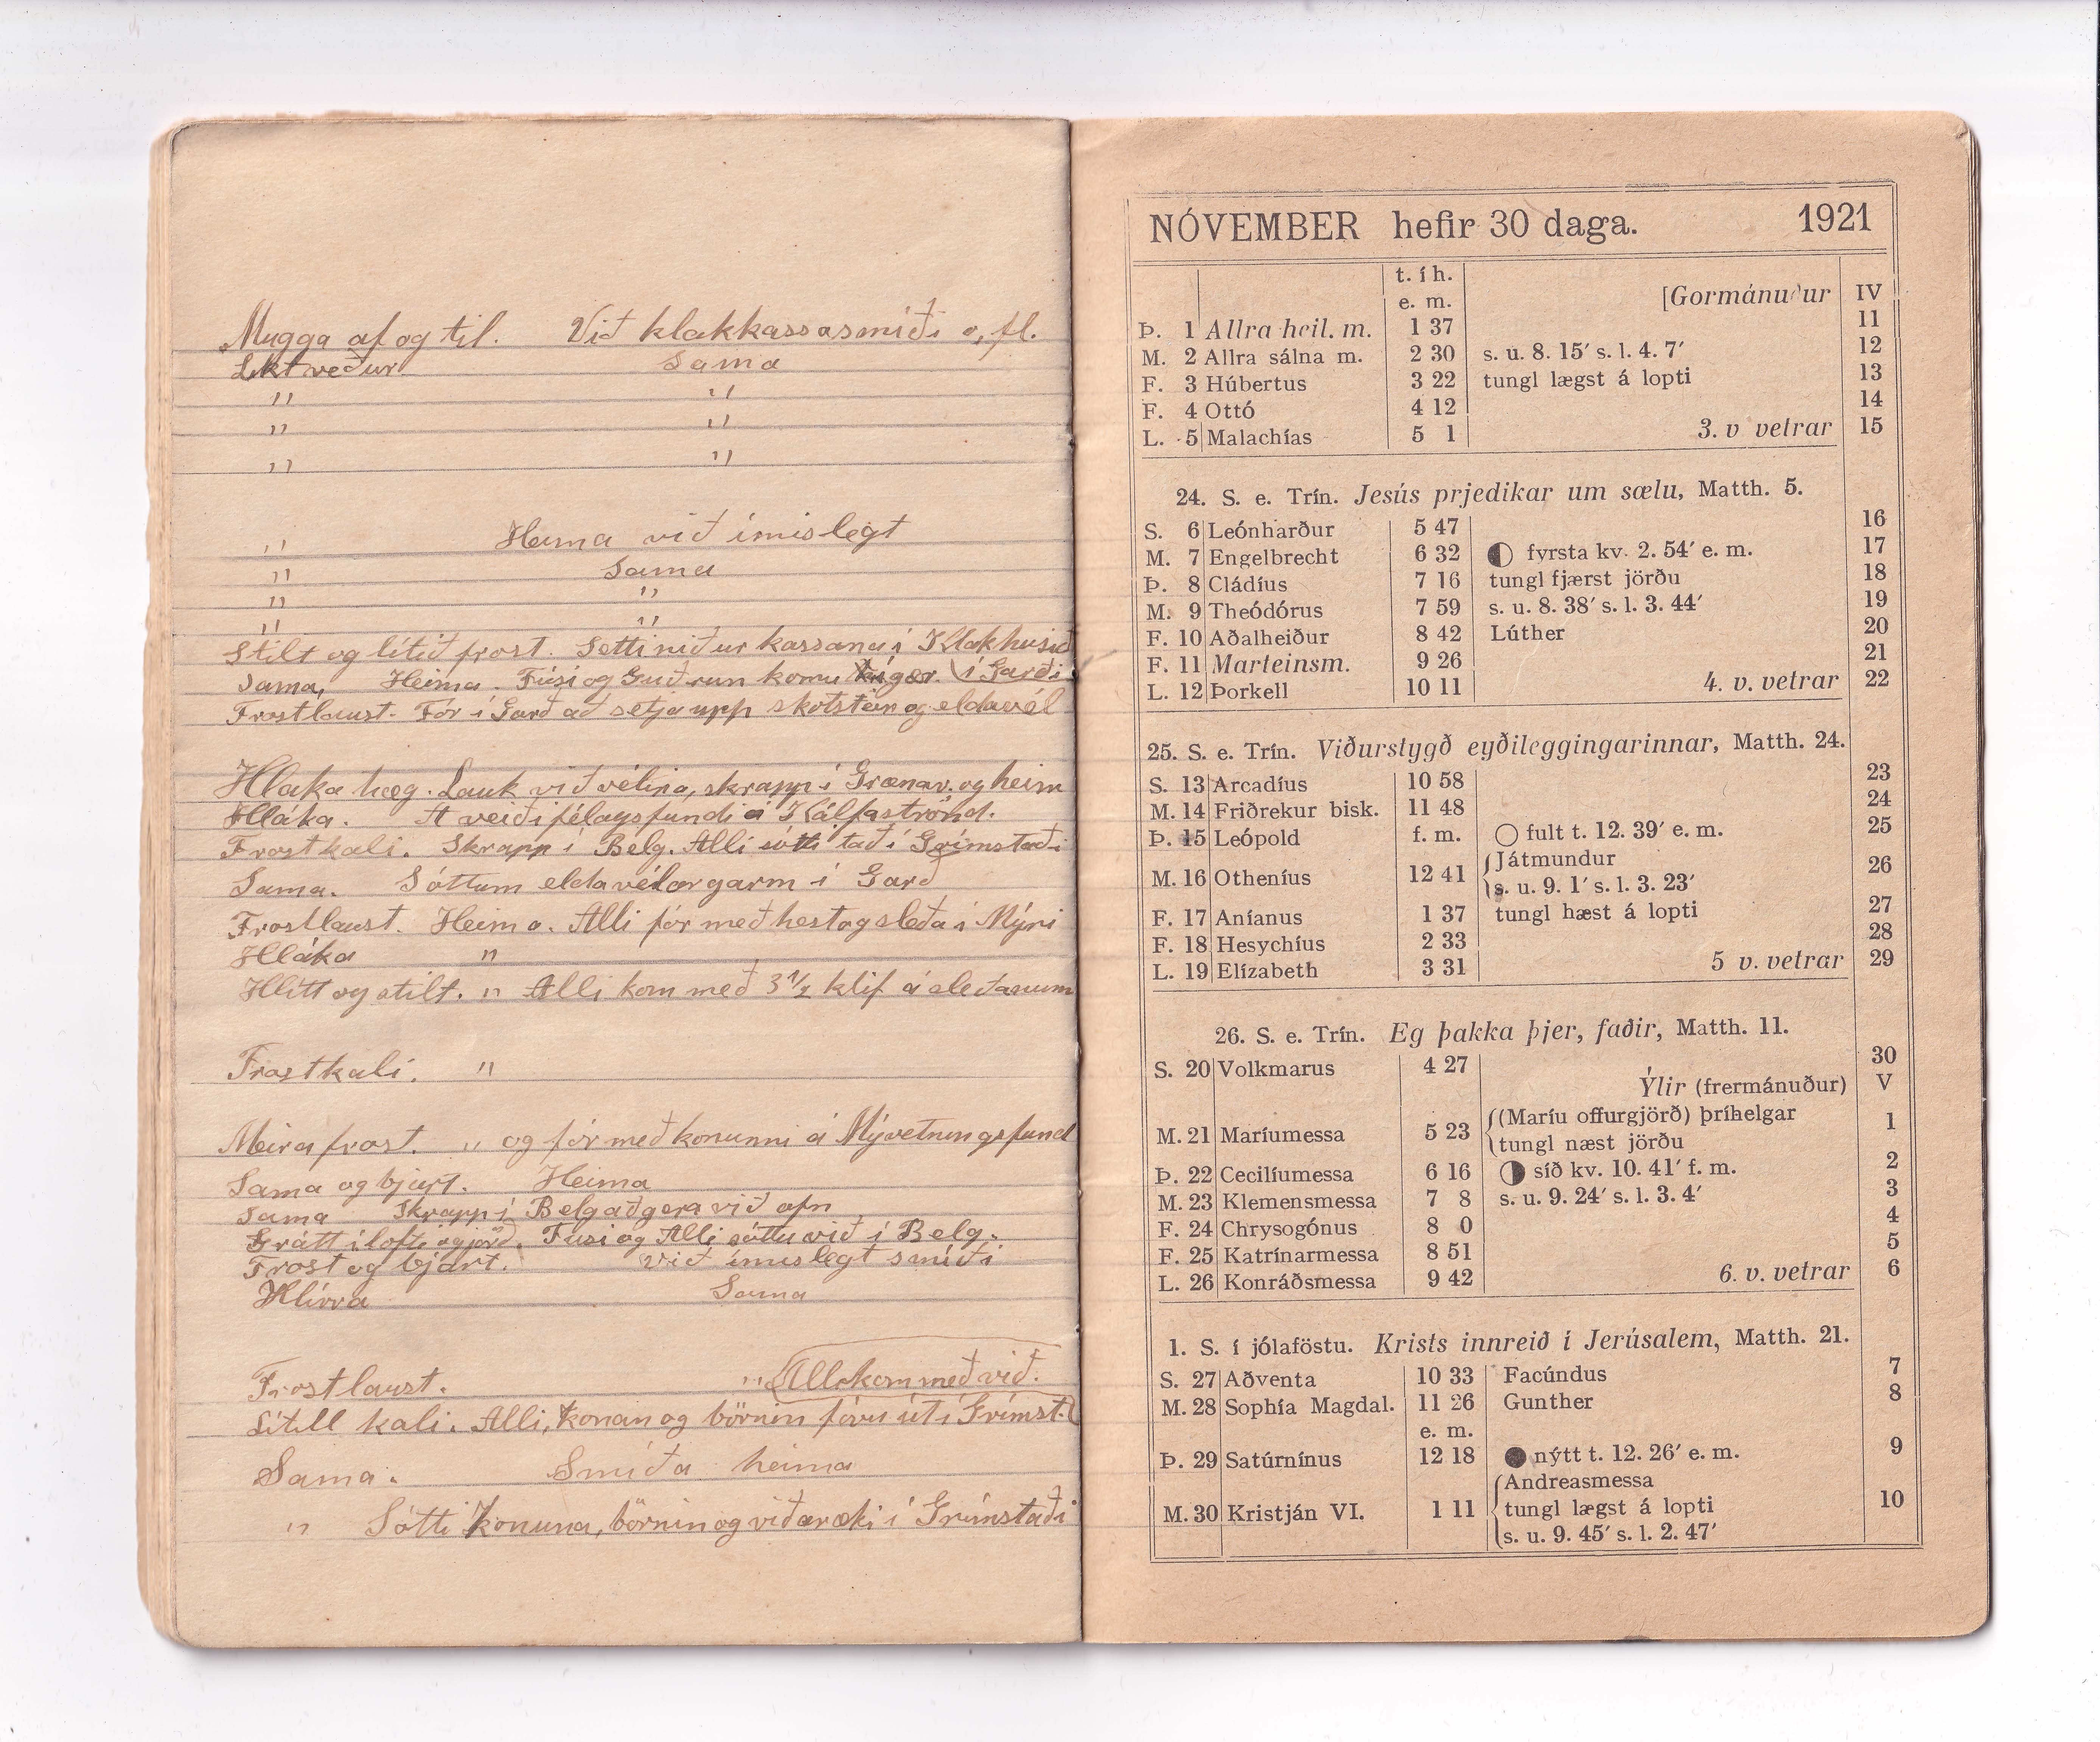 Mugga af og til. Við klakkassasmíði o, fl.
Likt veður Sama
" "
" "
" "
" Heima við ímislegt
" Sama
" "
" "
Stilt og lítið frost. Setti niður kassana í Klakhúsið
Sama, Heima. Fúsi og Guðrun komu í Garði
Frostlaust. Fór í Garð að setja upp skotstein og eldavél
Hláka hæg. Lauk við vélina, skrapp í Grænav. og heim
Hláka. Á veiðifélagsfundi á Kálfaströnd.
Frostkali. Skrapp í Belg. Alli sótti tað í Grímstaði
Sama. Sóttum eldavélargarm í Garð
Frostlaust. Heima. Alli fór með hest og sleða í Mýri
Hláka "
Hlítt og stilt. " Alli kom með 3 1/2 klif á sleðanum
Frostkali. "
Meira frost. " og fór með konunni á Mývetningafund
Sama og bjart. Heima
Sama Skrapp í Belg að gera við ofn
Grátt í lofti og jörð. Fúsi og Alli sóttu við í Belg.
Frost og bjart. Við ímislegt smíði
Hlírra Sama
Frostlaust. " Alli kom með við.
Lítill kali. Alli, konan og börnin fóru út í Grímst.
Sama. Smíða heima
" Sótti konuna, börnin og viðaræki í Grímstaði
NÓVEMBER hefir 30 daga. 1921
t. í h.
e. m. [Gormánuður IV
Þ. 1 Allra heil. m. 1 37 11
M. 2 Allra sálna m. 2 30 s. u. 8. 15′ s. l. 4. 7′ 12
F. 3 Húbertus 3 22 tungl lægst á lopti 13
F. 4 Ottó 4 12 14
L. 5 Malachías 5 1 3. v vetrar 15
24. S. e. Trín. Jesús prjedikar um sælu, Matth. 5.
S. 6 Leónharður 5 47 16
M. 7 Engelbrecht 6 32 fyrsta kv. 2. 54′ e. m. 17
Þ. 8 Cládíus 7 16 tungl fjærst jörðu 18
M. 9 Theódórus 7 59 s. u. 8. 38′ s. l. 3. 44′ 19
F. 10 Aðalheiður 8 42 Lúther 20
F. 11 Marteinsm. 9 26 21
L. 12 Þorkell 10 11 4. v. vetrar 22
25. S. e. Trín. Viðurstygð eyðileggingarinnar, Matth. 24.
S. 13 Arcadíus 10 58 23
M. 14 Friðrekur bisk. 11 48 24
Þ. 15 Leópold f. m. fult t. 12. 39′ e. m. 25
M. 16 Otheníus 12 41 Játmundur 26
s. u. 9. 1′ s. l. 3. 23′
F. 17 Aníanus 1 37 tungl hæst á lopti 27
F. 18 Hesychíus 2 33 28
L. 19 Elízabeth 3 31 5 v. vetrar 29
26. S. e. Trín. Eg þakka þjer, faðir, Matth. 11.
S. 20 Volkmarus 4 27 30
Ýlir (frermánuður) V
M. 21 Maríumessa 5 23 (Maríu offurgjörð) þríhelgar 1
tungl næst jörðu
Þ. 22 Cecilíumessa 6 16 síð kv. 10. 41′ f. m. 2
M. 23 Klemensmessa 7 8 s. u. 9. 24′ s. l. 3. 4′ 3
F. 24 Chrysogónus 8 0 4
F. 25 Katrínarmessa 8 51 5
L. 26 Konráðsmessa 9 42 6. v. vetrar 6
1. S. í jólaföstu. Krists innreið í Jerúsalem, Matth. 21.
S. 27 Aðventa 10 33 Facúndus 7
M. 28 Sophía Magdal. 11 26 Gunther 8
e. m.
Þ. 29 Satúrnínus 12 18 nýtt t. 12. 26′ e. m. 9
Andreasmessa
M. 30 Kristján VI. 1 11 tungl lægst á lopti 10
s. u. 9. 45′ s. l. 2. 47′